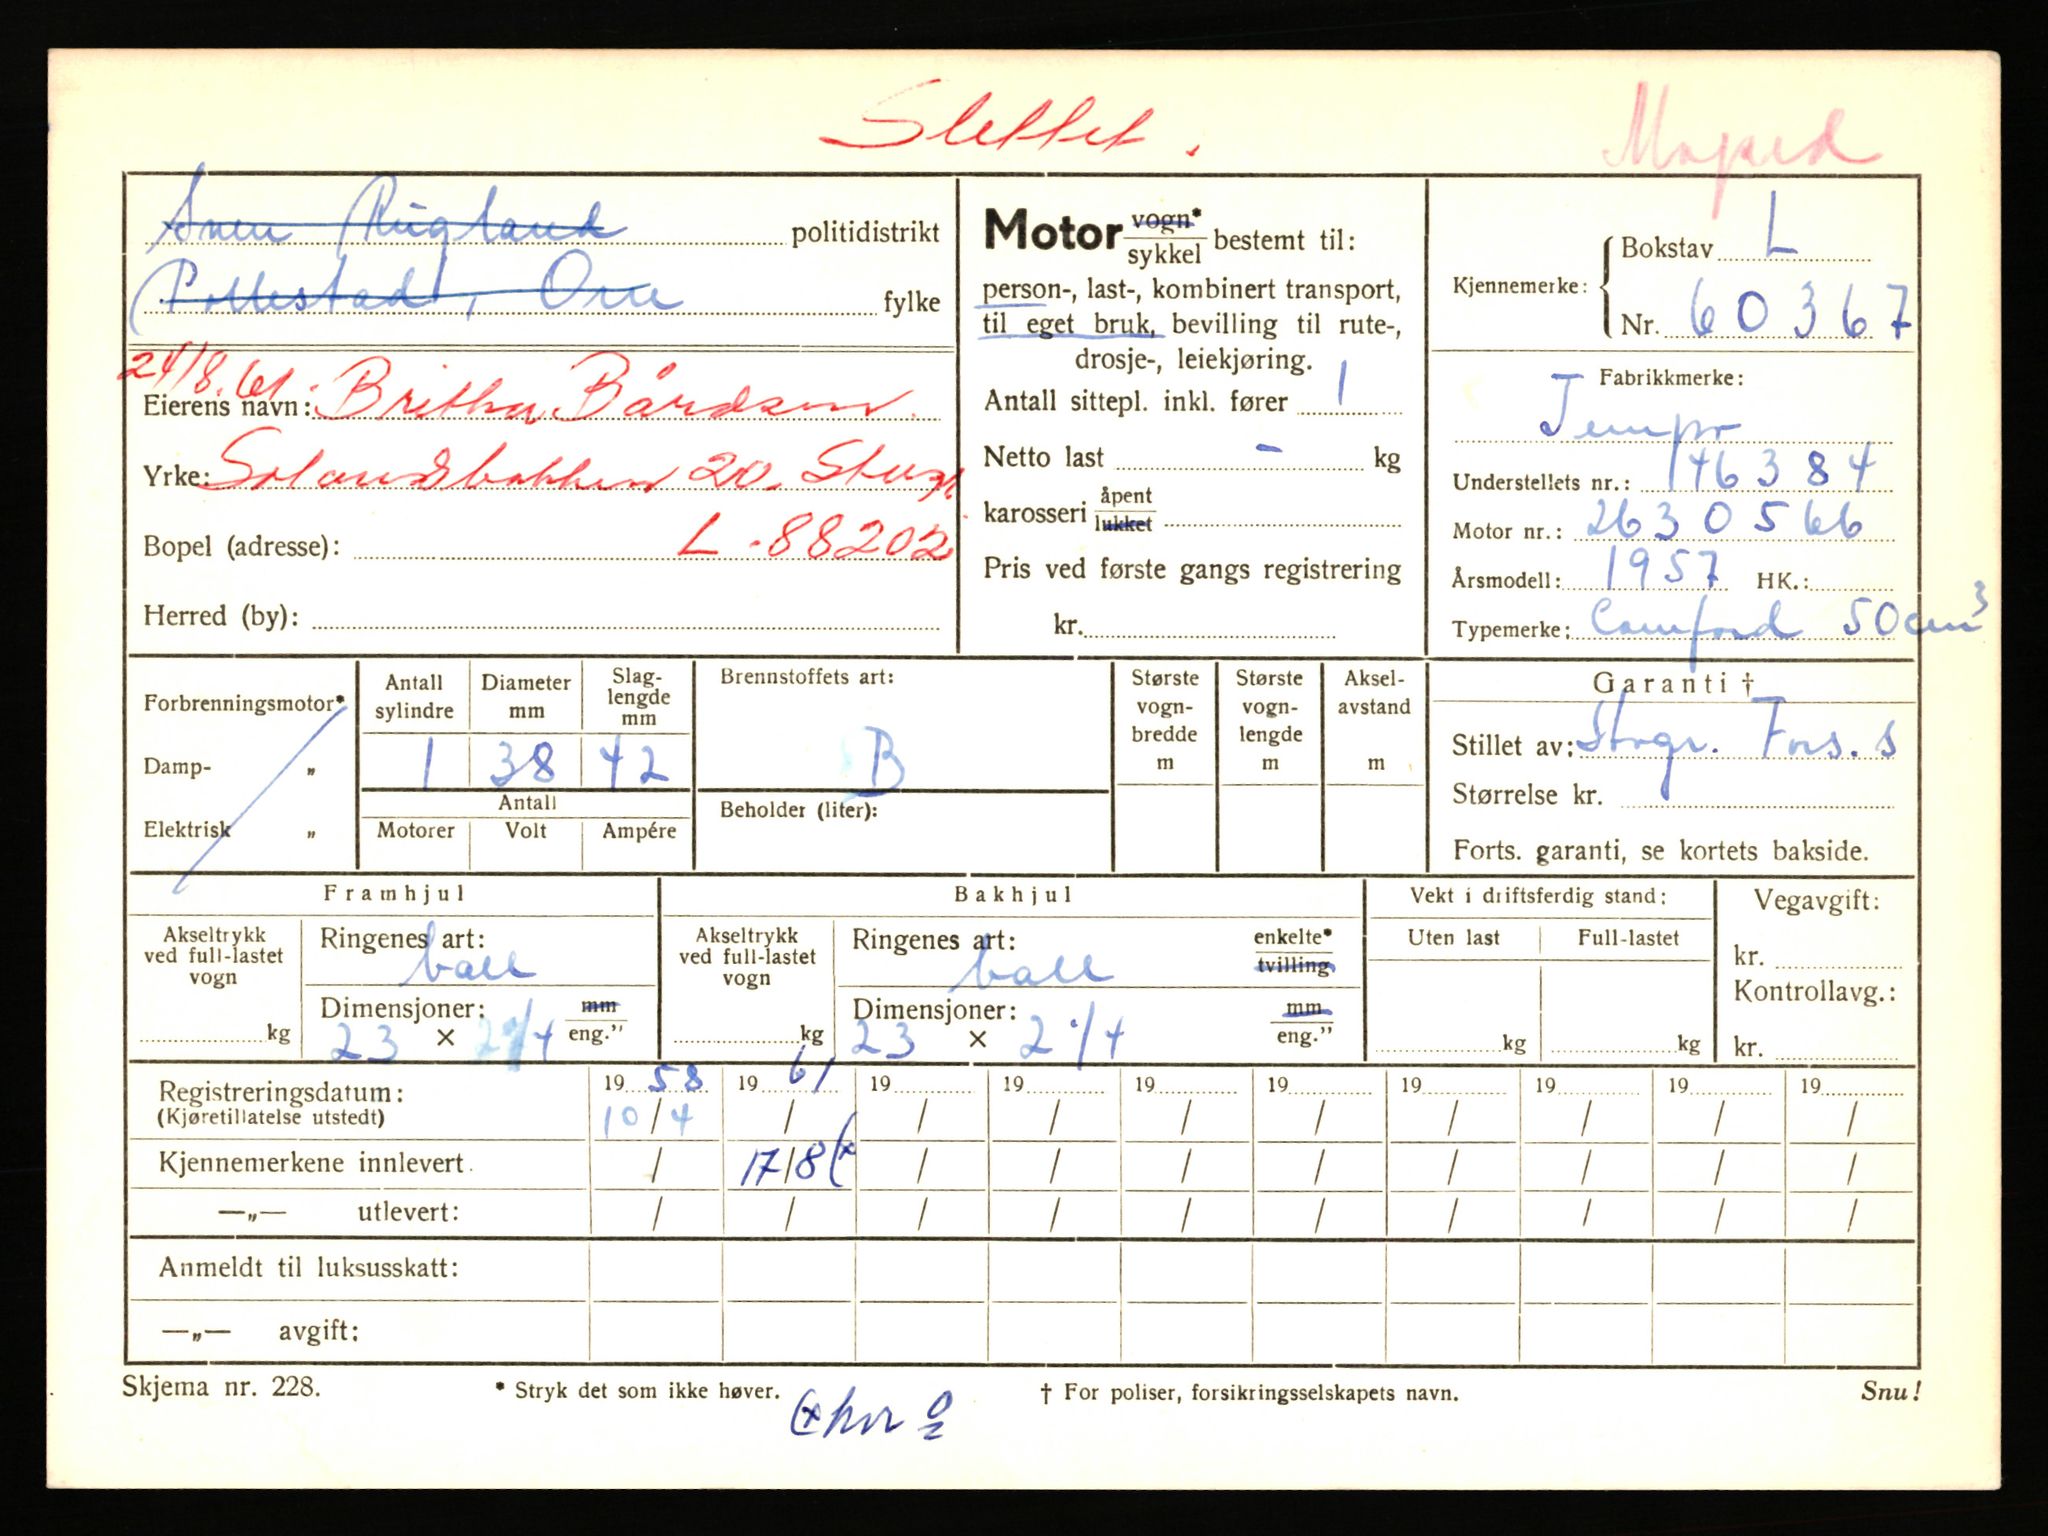 Slettet.
Moped
Rugland politidistrikt
Pollestad, Orre fylke
24/8.61. Eierens navn: Britha Bårdsen.
Yrke: Solandsbakken 20.
Bopel (adresse): L-88202
Herred (by):
Motor vogn*/sykkel bestemt til:
person-, last-, kombinert transport,
til eget bruk, bevilling til rute-,
drosje-, leiekjøring.
Antall sittepl. inkl. fører 1
Netto last - kg
karosseri åpent/lukket
Pris ved første gangs registrering
kr.
Kjennemerke: Bokstav L
Nr. 60367
Fabrikkmerke:
Tempo
Understellets nr.: 146384
Motor nr.: 2630566
Årsmodell: 1957 HK.:
Typemerke: Comford 50cm³
Forbrenningsmotor*
Damp- „
Elektrisk „
Antall sylindre Diameter mm Slag-lengde mm
1 38 42
Antall
Motorer Volt Ampére
Brennstoffets art:
B
Beholder (liter):
Største vogn-bredde m
Største vogn-lengde m
Aksel-avstand m
Garanti †
Stillet av: Storgr. Fors. s
Størrelse kr.
Forts. garanti, se kortets bakside.
Framhjul
Akseltrykk ved full-lastet vogn
kg
Ringenes art:
ball
Dimensjoner: mm/eng.”
23 × 2 1/4
Bakhjul
Akseltrykk ved full-lastet vogn
kg
Ringenes art: enkelte*/tvilling
ball
Dimensjoner: mm/eng.”
23 × 2 1/4
Vekt i driftsferdig stand:
Uten last Full-lastet
kg kg
Vegavgift:
kr.
Kontrollavg.:
kr.
Registreringsdatum: 19 58 19 61 19 19 19 19 19 19 19 19
(Kjøretillatelse utstedt) 10/4 / / / / / / / / /
Kjennemerkene innlevert. / 17/8 (x / / / / / / / /
—„— utlevert: / / / / / / / / / /
Anmeldt til luksusskatt:
—„— avgift:
Skjema nr. 228. * Stryk det som ikke høver. † For poliser, forsikringsselskapets navn. Snu!